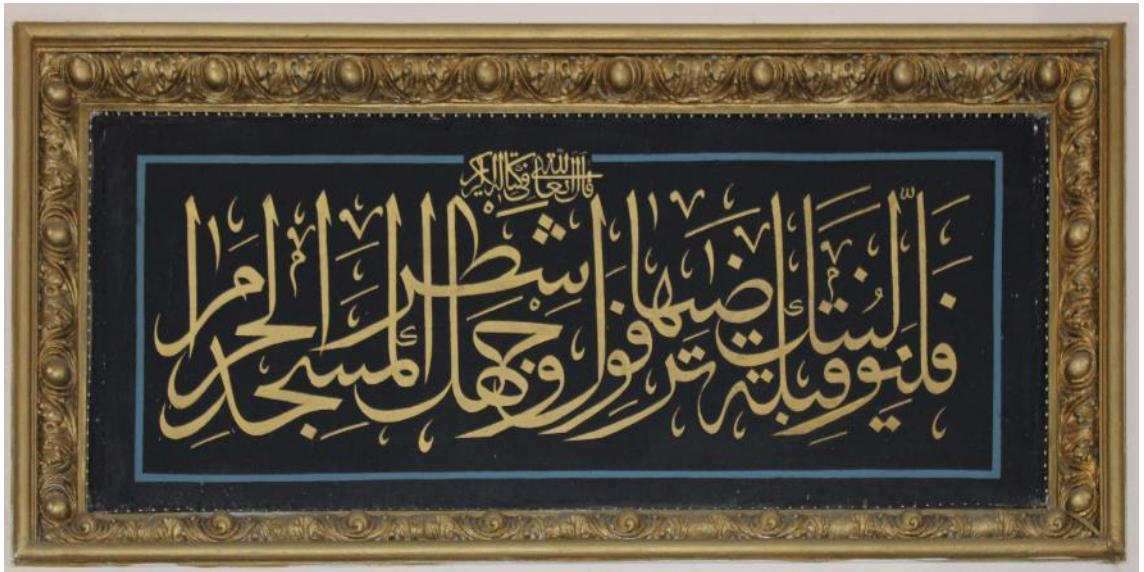 قال الله تعالى في كتابه الكريم
فلنولينك قبلة ترضيها فول وجهك شطر المسجد الحرام